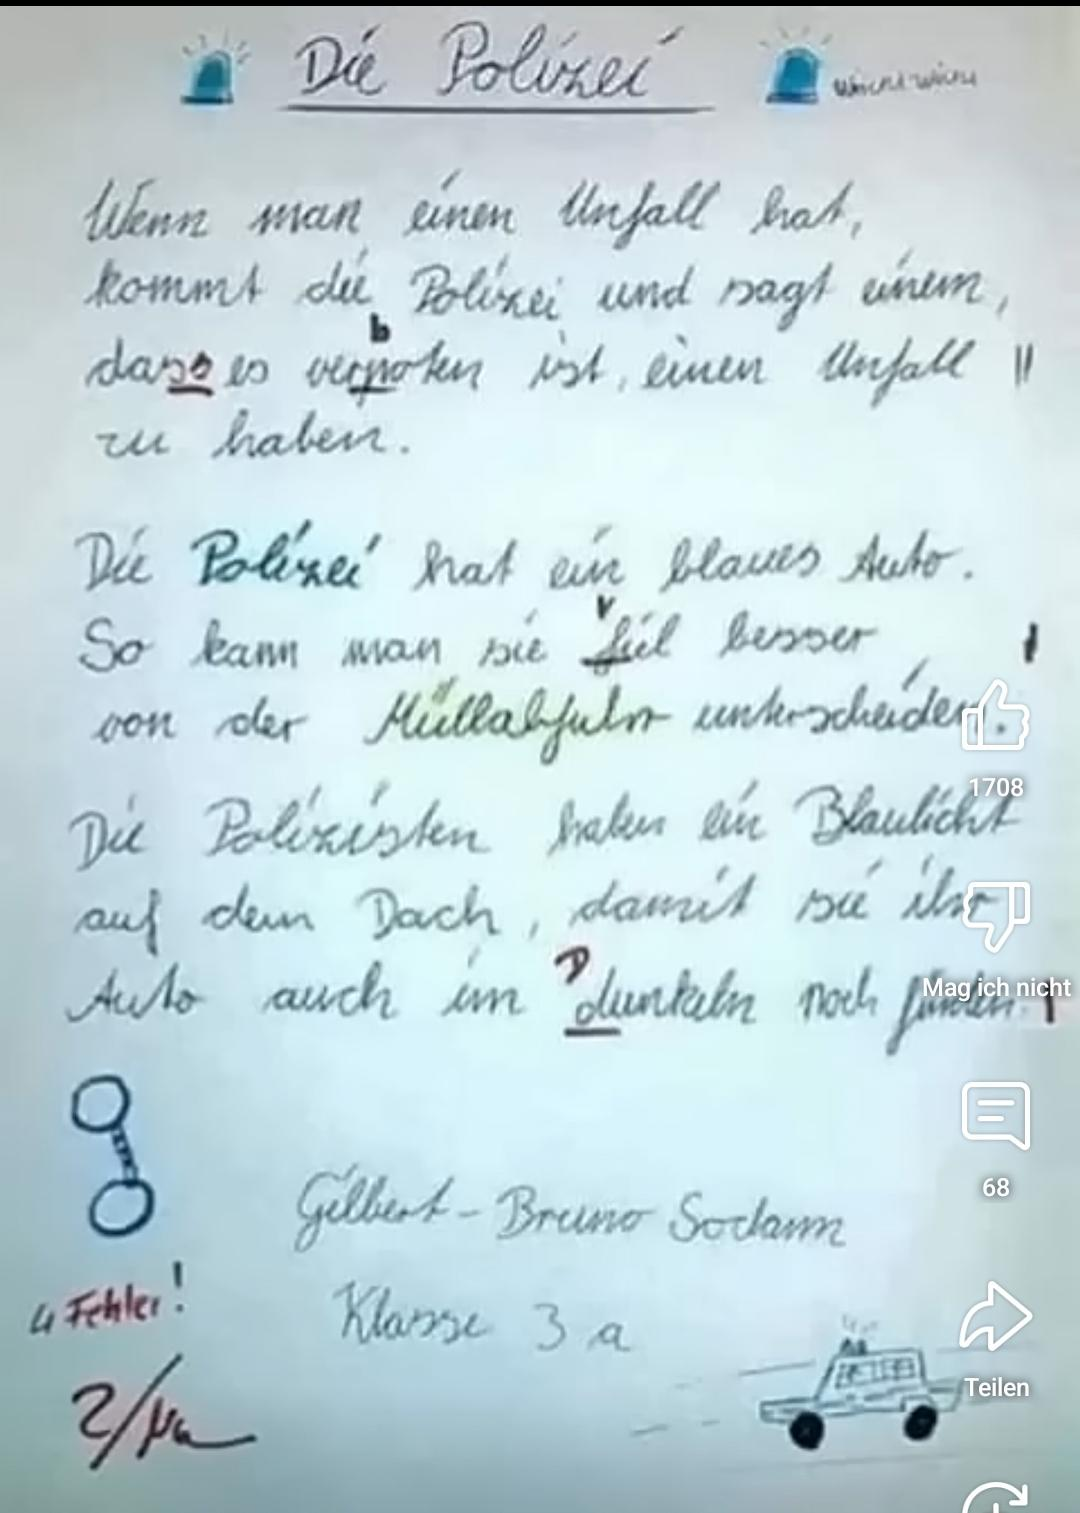 Die Polizei
Wenn man einen Unfall hat,
kommt die Polizei und sagt einem,
b
dass es verpoten ist, einen Unfall
zu haben.
Die Polizei hat ein blaues Auto.
v
So kann man sie fiel besser
von der Müllabfuhr unterscheiden.
1708
Die Polizisten haben ein Blaulicht
auf dem Dach, damit sie ihr
D
Auto auch im dunkeln noch finden.
Mag ich nicht
68
Gilbert-Bruno Sodann
4 Fehler!
Klasse 3a
Teilen
2/